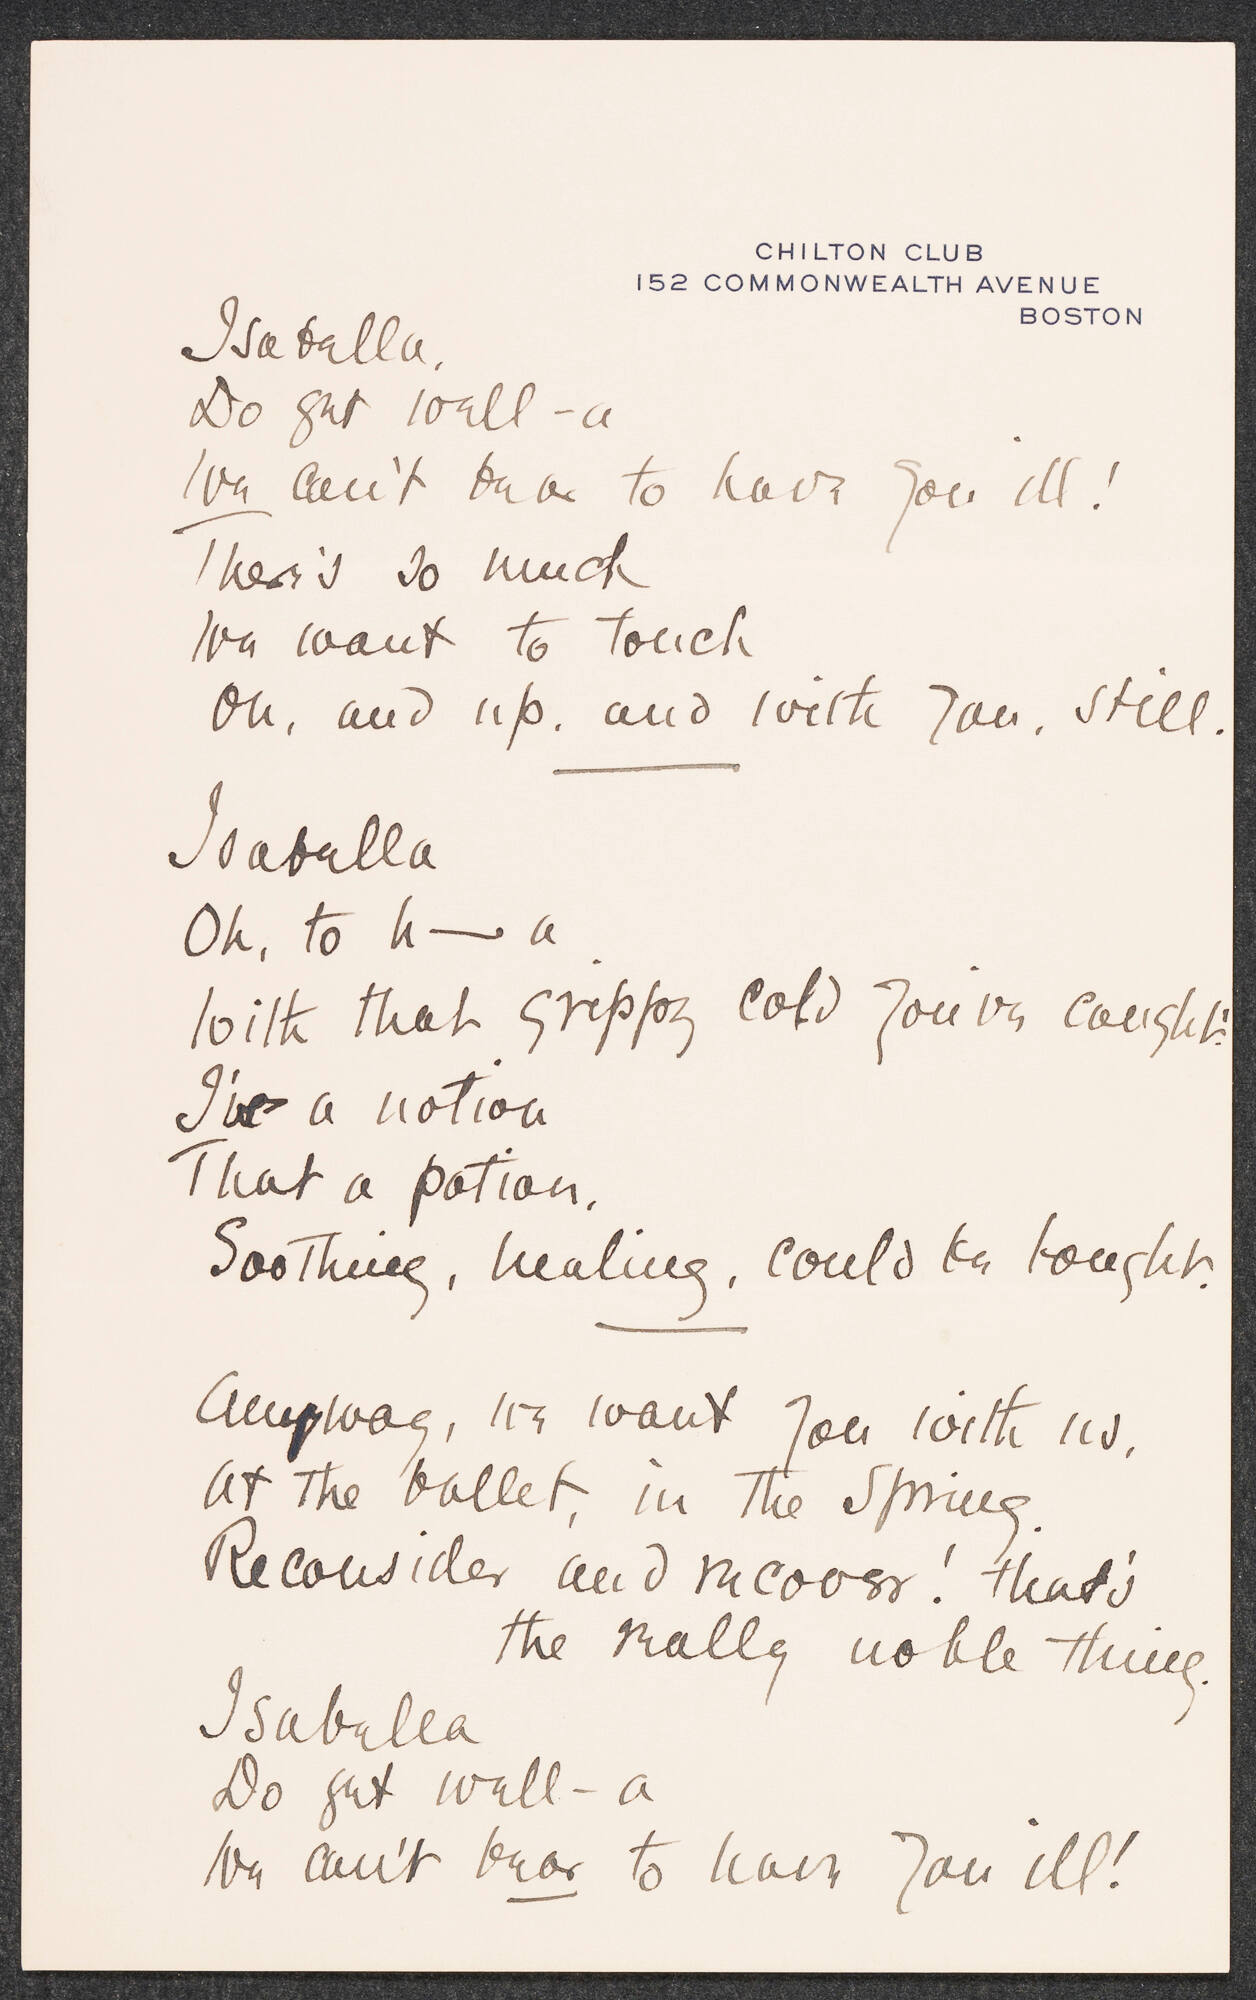 CHILTON CLUB
152 COMMONWEALTH AVENUE
BOSTON
Isabella,
Do get well-a
We can't bear to have you ill!
There's so much
We want to touch
On, and up, and with you, still.
Isabella
Oh, to h— a
With that grippy cold you've caught!
I've a notion
That a potion,
Soothing, healing, could be bought.
Anyway, we want you with us,
At the ballet, in the Spring.
Reconsider and recover! that's
the really noble thing.
Isabella
Do get well-a
We can't bear to have you ill!